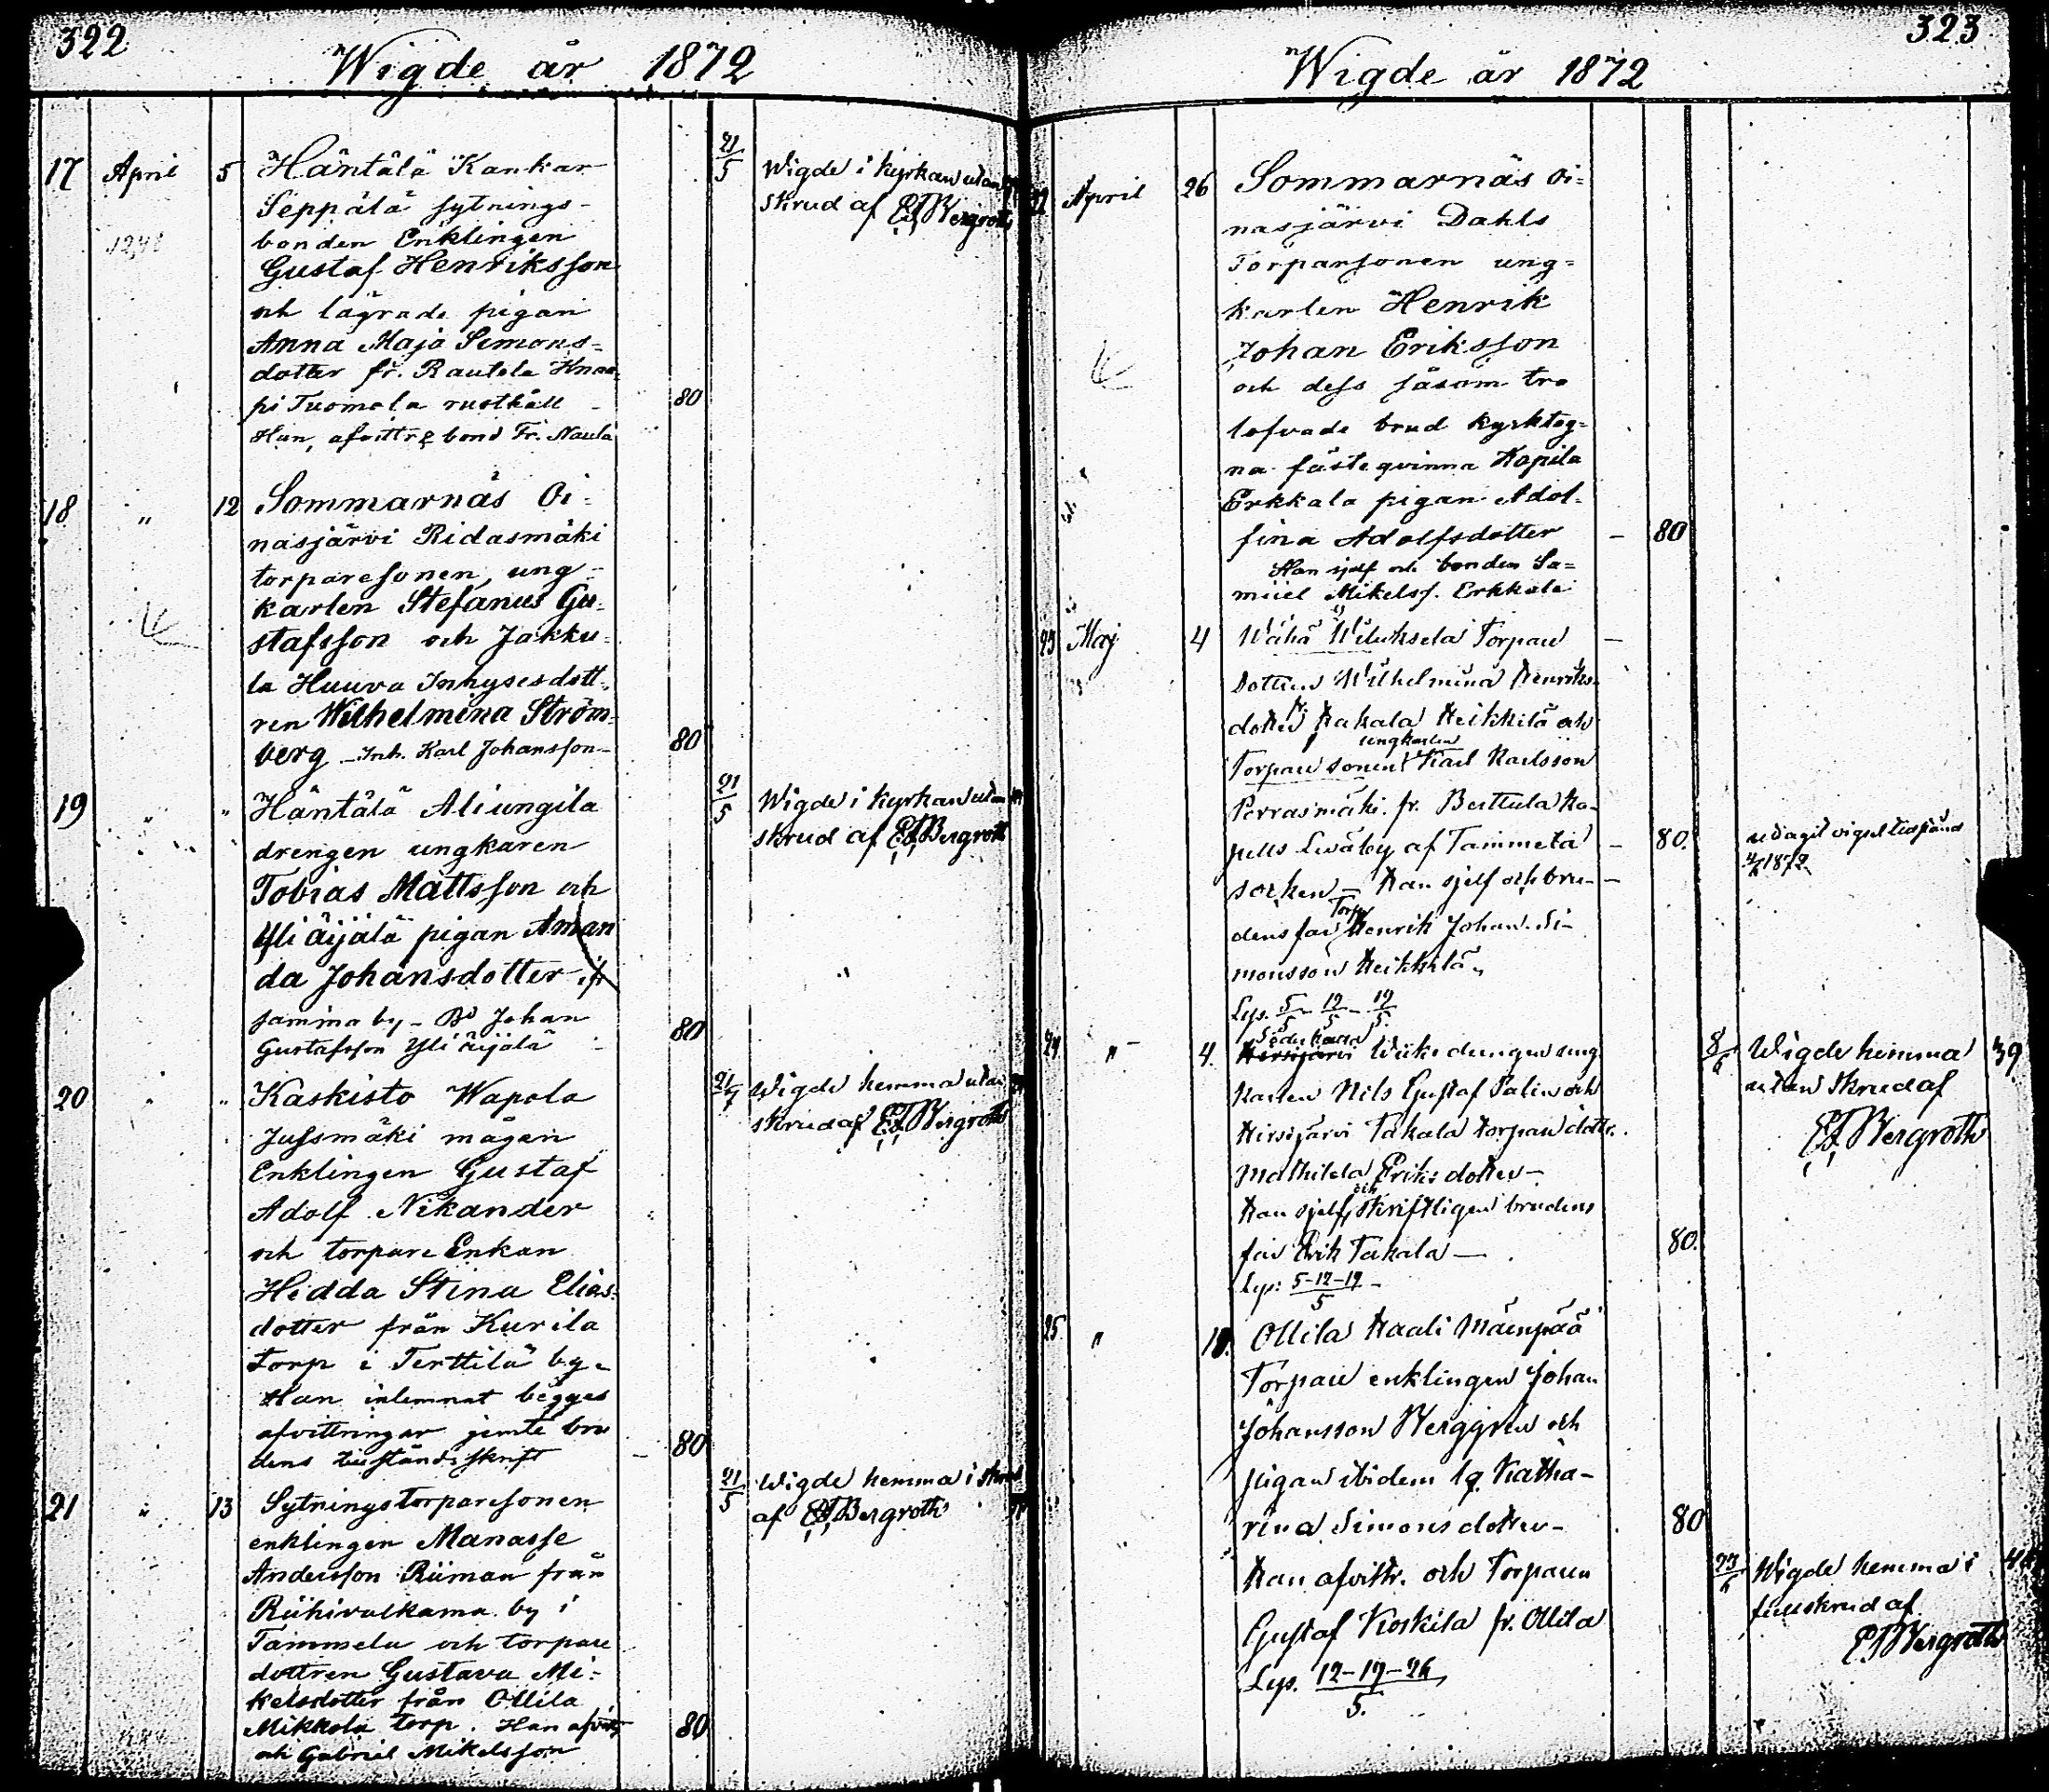 322
Wigde år 1872
17 April 5 Häntälä Kankar
Seppälä sytnings-
bonden Enklingen
Gustaf Henriksson
och lägrade pigan
Anna Maja Simons=
dotter fr. Rautela Knaa-
pi Tuomola rusthåll - 80
Han, afvittr. & bond Fr. Naula
21/5 Wigde i kyrkan utan
skrud af Ed Bergroth
18 " 12 Sommarnäs Oi=
nasjärvi Ridasmäki
torparesonen, ung-
karlen Stefanus Gu-
stafsson och Jakku-
la Huuva Inhysesdott-
ren Wilhelmina Ström-
berg - Inh. Karl Johansson - 80
19 " " Häntälä Aliungila
drengen ungkaren
Tobias Mattsson och
Yli äijälä pigan Aman
da Johansdotter ifr
samma by - Bd Johan
Gustafsson Yli äijälä - 80
21/5 Wigde i kyrkan utan
skrud af Ed Bergroth
20 " " Kaskisto Wapola
Jussmäki mågen
Enklingen Gustaf
Adolf Nikander
och torpare Enkan
Hedda Stina Elias-
dotter från Kurila
torp i Terttilä by -
Han inlemnat bägges
afvittringar jemte bru
dens tillstånds skrift - 80
Wigde hemma utan
skrud af Ed Bergroth
21 " 13 Sytningstorparesonen
enklingen Manasse
Andersson Riiman från
Riihivalkama by i
Tammela och torpare
dottren Gustava Mi-
kelsdotter från Ollila
Mikkola torp. Han afvittr 80
och Gabriel Mikelsson
21/5 Wigde hemma i skrud
af Ed Bergroth
323
Wigde år 1872
22 April 26 Sommarnäs Oi=
nasjärvi Dahls
Torparsonen ung=
karlen Henrik
Johan Eriksson
och dess såsom tro
lofvade brud kyrktog=
na fästeqvinna Kopila
Erkkala pigan Adol-
fina Adolfsdotter - 80
Han sjelf och bonden Sa=
muel Mikelss. Erkkola
23 Maj 4 Wähä Wiluksela Torpare
dottren Wilhelmina Henriks-
dotter fr. Hakala Heikkilä och
ungkarlen
Torpare sonen Karl Karlsson
Porrasmäki fr. Berttula Ka-
pells by af Tammela - 80.
socken - Han sjelf och bru-
dens far Torp. Henrik Johan Si-
monsson Heikkilä.
Lys. 5/5 - 12/5 - 19/5.
1872
24 " 4. Hirsijärvi Wiiki drengen ung
karlen Nils Gustaf Palin och
Hirsijärvi Takala torpare dottr.
Mathilda Eriks dotter -
Han sjelf och skriftligen brudens
far Erik Takala - 80.
Lys: 5-12-19/5
8/6 Wigde hemma 39
utan skrud af
Ed Bergroth
25 " Ollila Kaali Mäenpää
Torpare enklingen Johan
Johansson Werggren och
pigan ibidem lg. Katha-
rina Simons dotter - 80
Han afvittr. och Torparen
Gustaf Koskila fr. Ollila
Lys. 12-19-26/5.
23/6 Wigde hemma i
full skrud af
Ed Bergroth